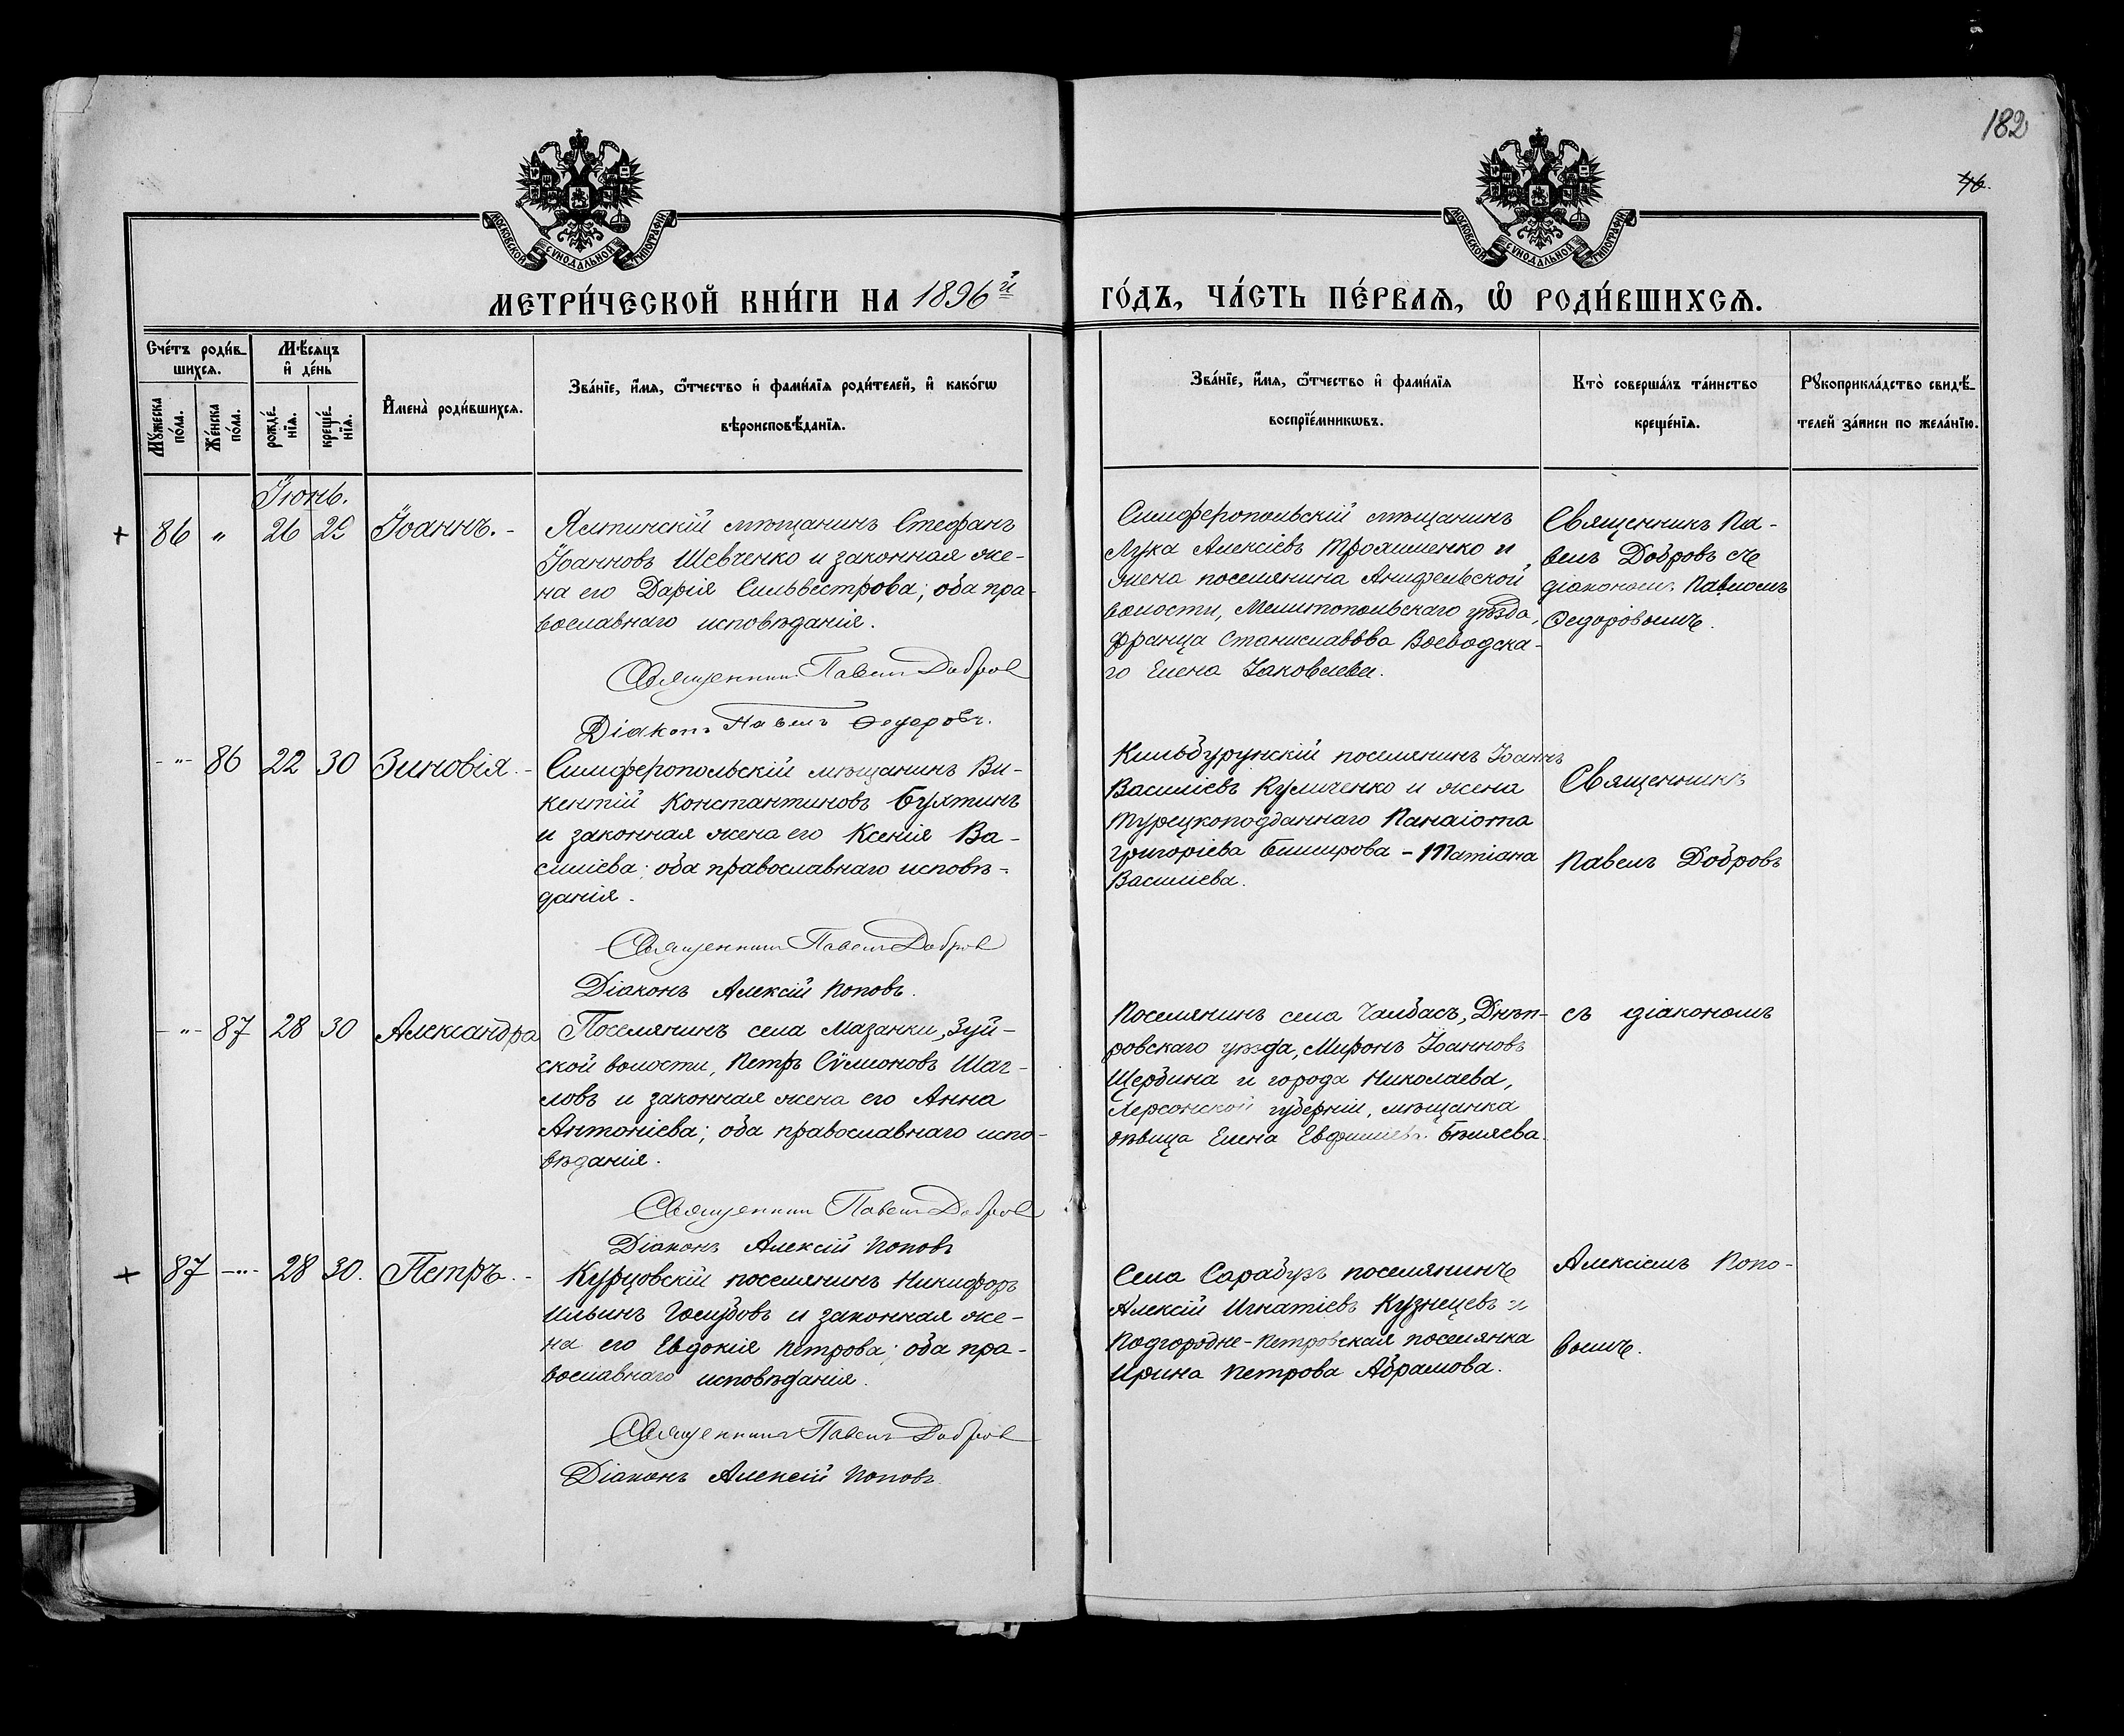 182
46.
МОСКОВСКОЙ СѴНОДАЛЬНОЙ ТИПОГРАФІИ
МОСКОВСКОЙ СѴНОДАЛЬНОЙ ТИПОГРАФІИ
МЕТРИ́ЧЕСКОЙ КНИ́ГИ НА 1896й
ГО́ДЪ, ЧА́СТЬ ПЕ́РВАѦ, Ѽ РОДИ́ВШИХСѦ.
Сче́тъ роди́в-
шихсѧ.
Мѣ́сѧцъ
и҆ де́нь
Мꙋ́жеска
по́ла.
Же́нска
по́ла.
рожде́-
нїѧ.
креще́-
нїѧ.
И҆мена̀ роди́вшихсѧ.
Зва́нїе, и҆́мѧ, ѻ҆́тчество и҆ фами́лїѧ роди́телей, и҆ како́гѡ
вѣроисповѣ́данїѧ.
Зва́нїе, и҆́мѧ, ѻ҆́тчество и҆ фами́лїѧ
воспрїе́мникѡвъ.
Кто̀ соверша́лъ та́инство
креще́нїѧ.
Рꙋкоприкла́дство свидѣ́-
телей за́писи по жела́нїю.
Іюнь.
+ 86 " 26 29 Іоаннъ. -
Ялтинскій мѣщанинъ Стефанъ
Іоанновъ Шевченко и законная же-
на его Дарія Сильвестрова; оба пра-
вославнаго исповѣданія.
Священникъ Павелъ Добровъ
Діаконъ Павелъ Ѳедоровъ.
Симферопольскій мѣщанинъ
Лука Алексіевъ Трояшменко и
жена поселянина
волости, Мелитопольскаго уѣзда,
Франца Станиславова Воеводска-
го Елена Іаковлева.
Священникъ Па-
велъ Добровъ съ
діакономъ Павломъ
Ѳедоровымъ.
-"- 86 22 30 Зиновія. -
Симферопольскій мѣщанинъ Ви-
кентій Константиновъ Бухтинъ
и законная жена его Ксенія Ва-
силіева; оба православнаго исповѣ-
данія.
Священникъ Павелъ Добровъ
Діаконъ Алексій Поповъ.
Кильбурунскій поселянинъ Іоаннъ
Василіевъ Куличенко и жена
турецкоподданнаго Панаіота
Григоріева - Татіана
Василіева.
Священникъ
Павелъ Добровъ
-"- 87 28 30 Александра
Поселянинъ села Мазанки, Зуй-
ской волости, Петръ Сѵмоновъ Щег-
ловъ и законная жена его Анна
Антоніева; оба православнаго испо-
вѣданія.
Священникъ Павелъ Добровъ
Діаконъ Алексій Поповъ
Поселянинъ села Чалбасъ, Днѣп-
ровскаго уѣзда, Миронъ Іоанновъ
Щербина и города Николаева,
Херсонской губерніи, мѣщанка
дѣвица Елена Евфиміева Бѣляева.
съ діакономъ
+ 87 -"- 28 30. Петръ. -
Курцовскій поселянинъ Никифоръ
Ильинъ Голубовъ и законная же-
на его Евдокія Петрова; оба пра-
вославнаго исповѣданія.
Священникъ Павелъ Добровъ
Діаконъ Алексій Поповъ.
Села Сарабузъ поселянинъ
Алексій Игнатіевъ Кузнецевъ и
Подгородне-Петровская поселянка
Ирина Петрова Абрамова.
Алексіемъ Попо-
вымъ.